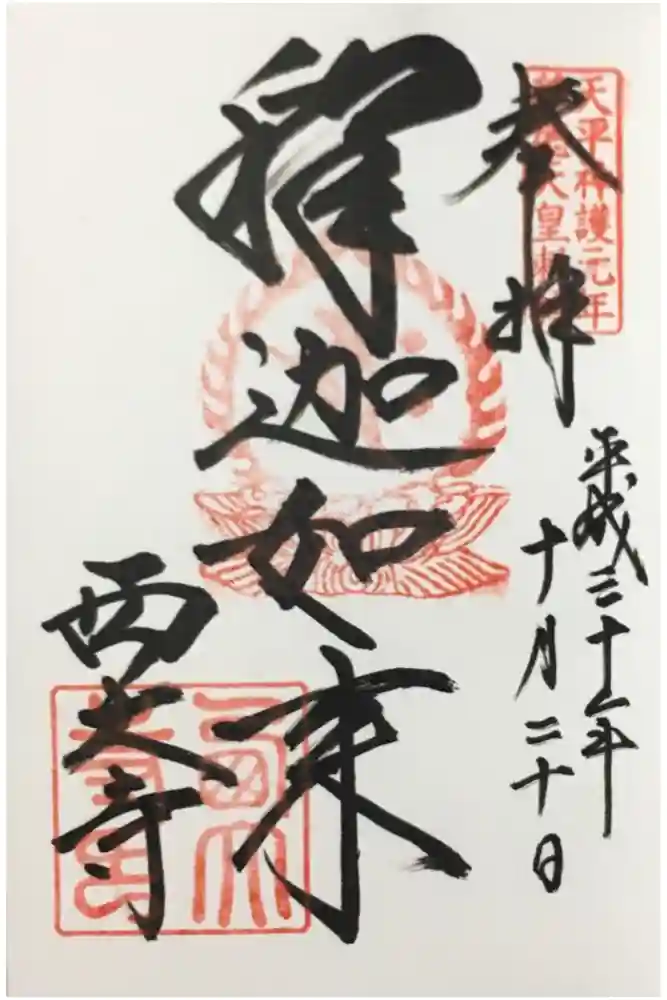 奉拝
天平神護元年
天皇勅
平成三十年
十月二十日
釋迦如来
西大寺